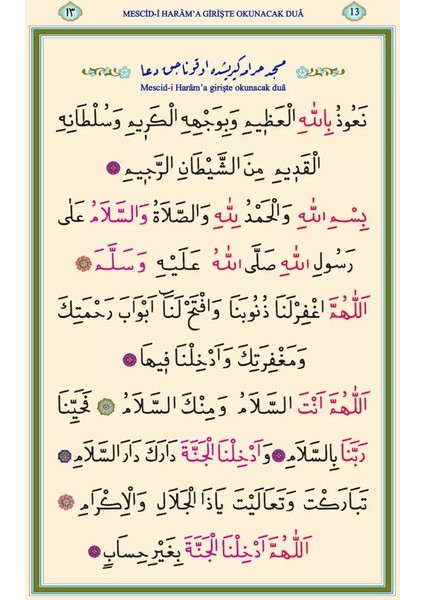 ١٣ MESCİD-İ HARÂM'A GİRİŞTE OKUNACAK DUÂ 13
مسجد حرامه گیریشده اوقوناجق دعا
Mescid-i Harâm'a girişte okunacak duâ
نَعُوذُ بِاللّٰهِ الْعَظِيمِ وَبِوَجْهِهِ الْكَرِيمِ وَسُلْطَانِهِ
الْقَدِيمِ مِنَ الشَّيْطَانِ الرَّجِيمِ
بِسْمِ اللّٰهِ وَالْحَمْدُ لِلّٰهِ وَالصَّلَاةُ وَالسَّلَامُ عَلٰى
رَسُولِ اللّٰهِ صَلَّى اللّٰهُ عَلَيْهِ وَسَلَّمَ
اَللّٰهُمَّ اغْفِرْلَنَا ذُنُوبَنَا وَافْتَحْ لَنَا اَبْوَابَ رَحْمَتِكَ
وَمَغْفِرَتِكَ وَاَدْخِلْنَا فِيهَا
اَللّٰهُمَّ اَنْتَ السَّلَامُ وَمِنْكَ السَّلَامُ فَحَيِّنَا
رَبَّنَا بِالسَّلَامِ وَاَدْخِلْنَا الْجَنَّةَ دَارَكَ دَارَ السَّلَامِ
تَبَارَكْتَ وَتَعَالَيْتَ يَاذَا الْجَلَالِ وَالْاِكْرَامِ
اَللّٰهُمَّ اَدْخِلْنَا الْجَنَّةَ بِغَيْرِ حِسَابٍ